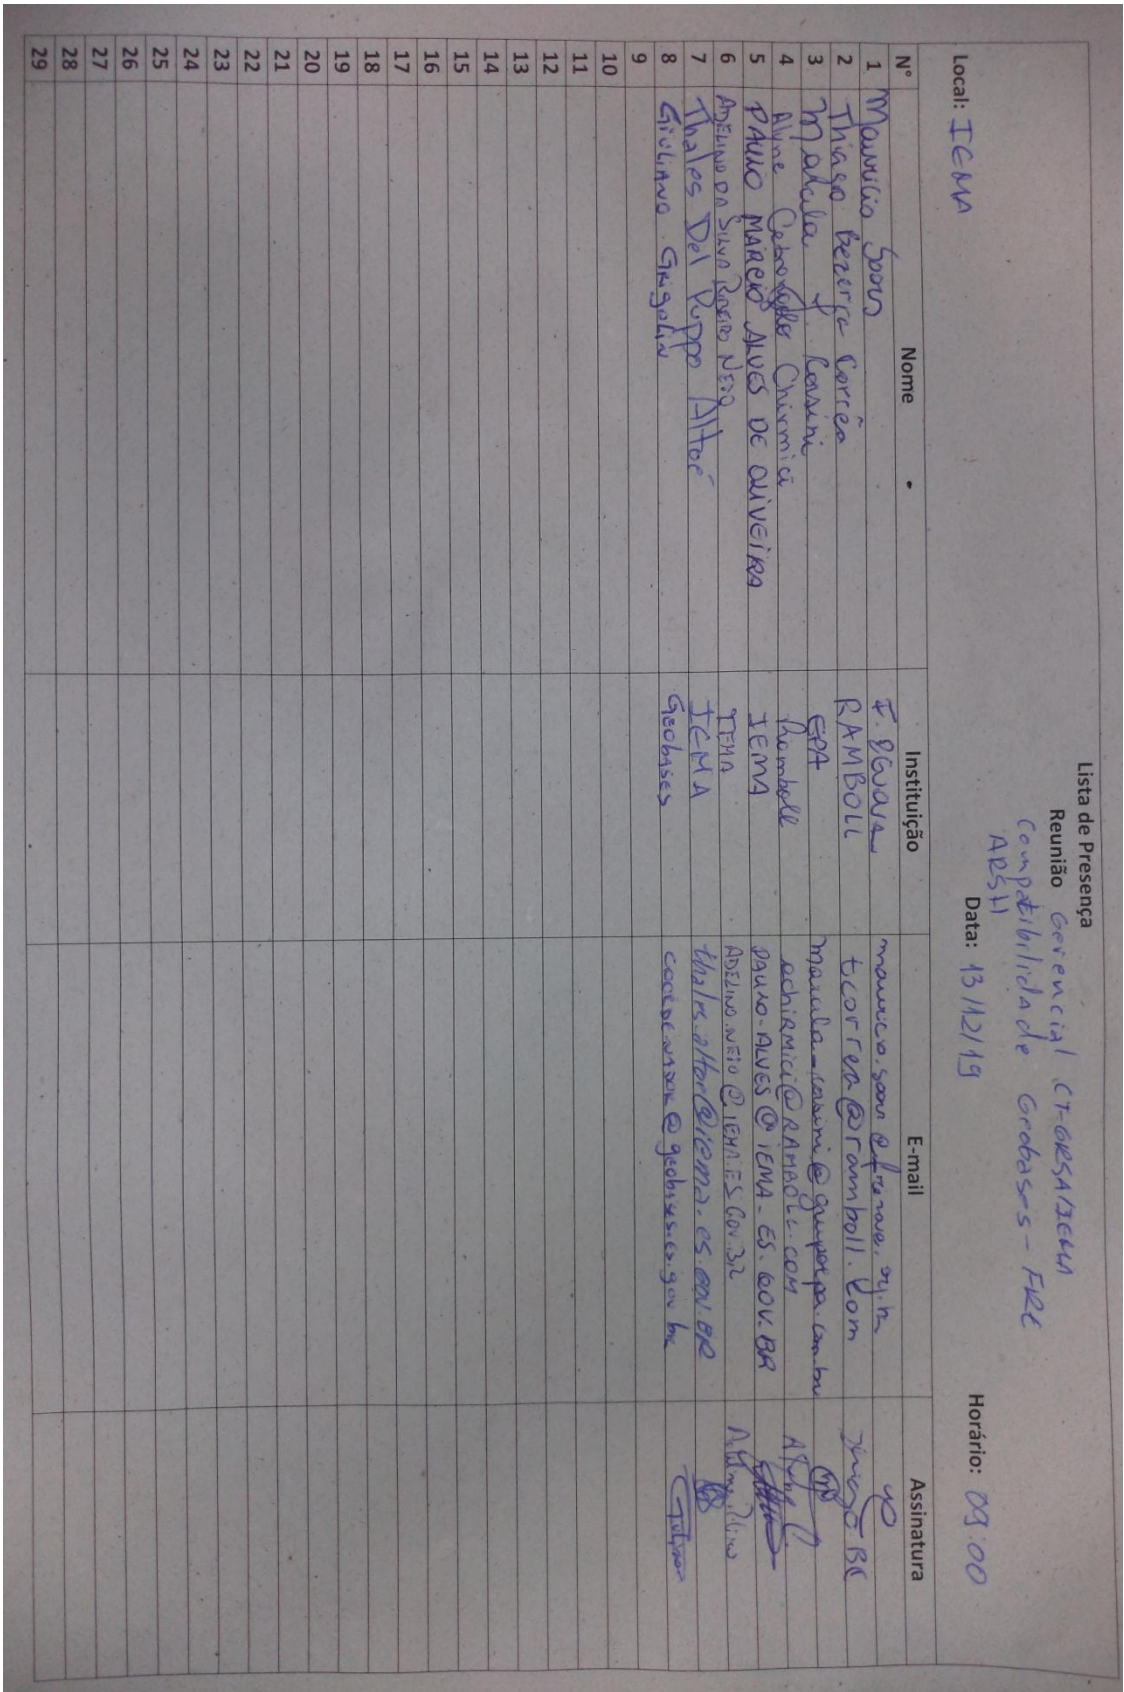 Lista de Presença
Reunião Gerencial CT-GRSA/IEMA
Compatibilidade Geobases - FRC
ARSH
Local: IEMA Data: 13/12/19 Horário: 09:00
N° Nome Instituição E-mail Assinatura
1 Mauricio
2 Thiago Bezerra Corrêa RAMBOLL tcorrea@ramboll.com
3 EPA
4 Alyne Chirmici Ramboll achirmici@RAMBOLL.COM
5 PAULO MARCIO ALVES DE OLIVEIRA IEMA PAULO.ALVES@IEMA.ES.GOV.BR
6 ADELINO DA SILVA RIBEIRO NETO IEMA ADELINO.NETO@IEMA.ES.GOV.BR
7 Thales Del Puppo Altoé IEMA thales.altoe@iema.es.gov.br
8 GIULIANO GRIGOLIN Geobases coordenador@geobases.es.gov.br
9
10
11
12
13
14
15
16
17
18
19
20
21
22
23
24
25
26
27
28
29